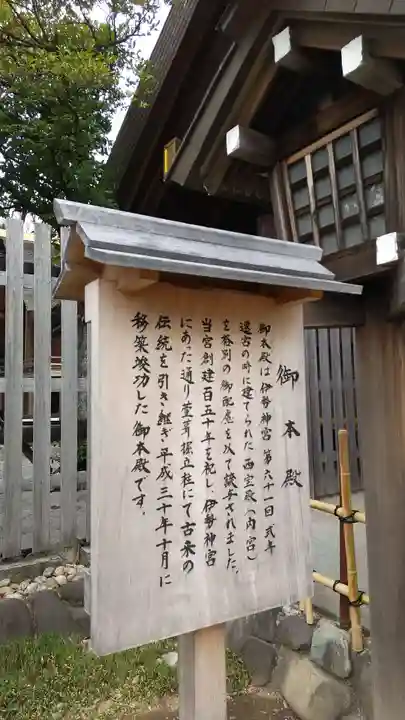 御本殿
御本殿は伊勢神宮 第六十一回式年
遷宮の時に建てられた 西宝殿(内宮)
を格別の御配慮を以て譲与されました。
当宮創建百五十年を祝し、伊勢神宮
にあった通り萱葺掘立柱にて古来の
伝統を引き継ぎ平成三十年十月に
移築竣功した御本殿です。